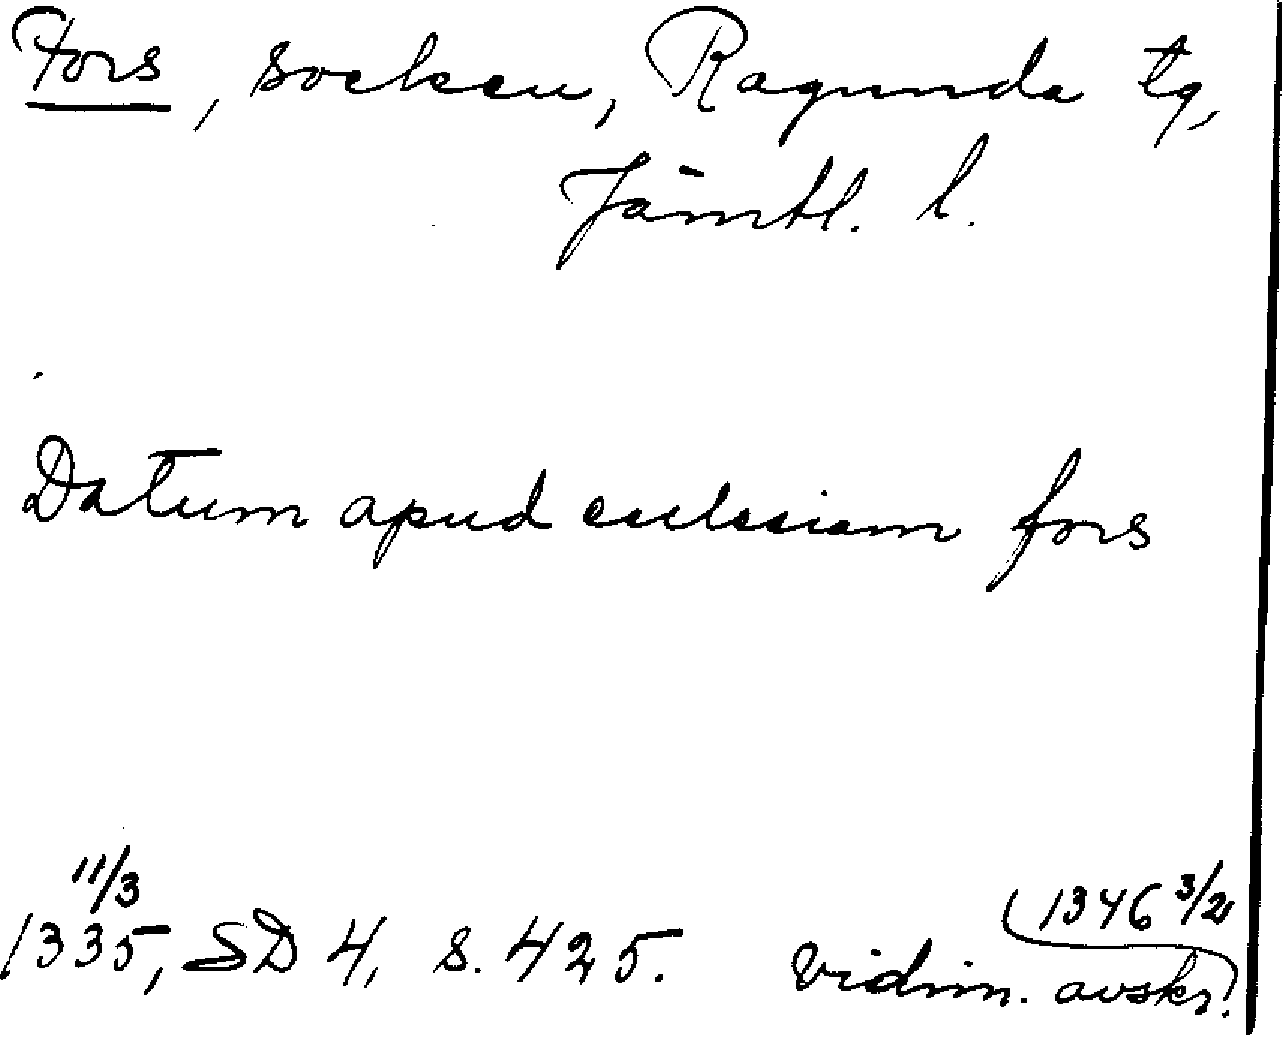 Fors, socken, Ragunda tg,
Jämtl. l.
Datum apud ecclesiam fors
11/3
1335, SD 4, s. 425. Vidim. avskr.
1346 3/2